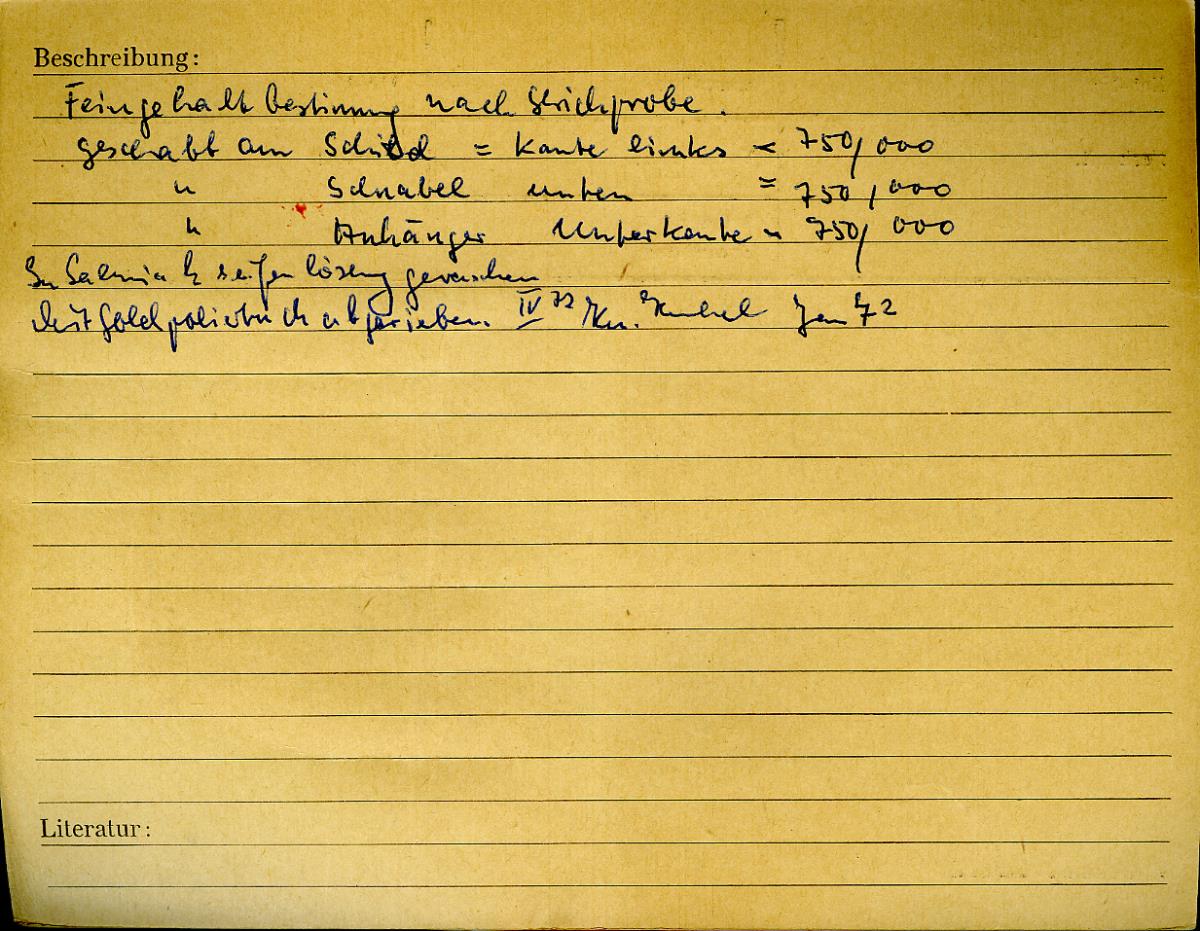 Beschreibung:
Feingehaltbestimmung nach Strichprobe.
geschabt am Schild = Kante links = 750/000
" Schnabel unten = 750/000
" Anhänger Unterkante = 750/000
In Salmiakseifenlösung gewaschen
Mit Goldpoliertuch abgerieben. IV 72 Jan 72
Literatur: